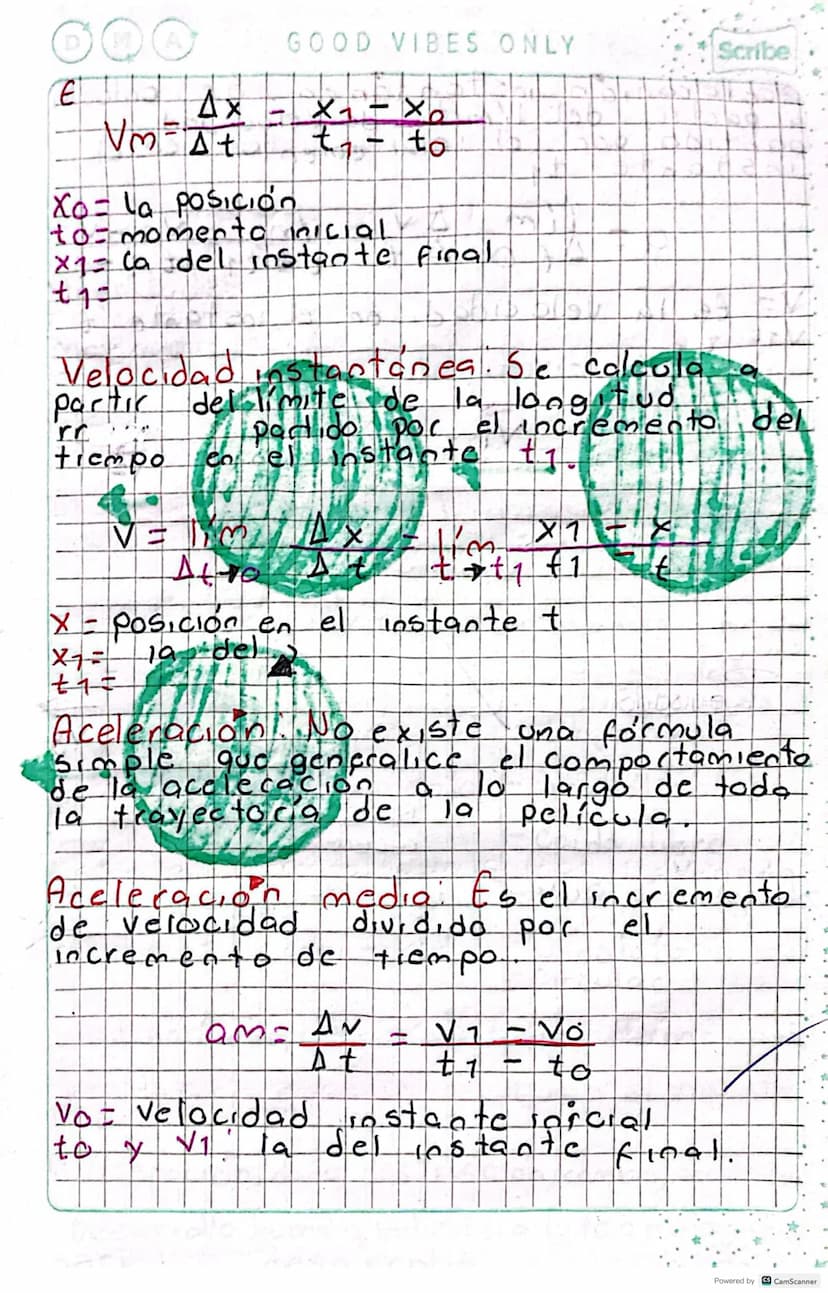 D M A GOOD VIBES ONLY Scribe
E
Vm = Δx / Δt = x1 - x0 / t1 - t0
x0 = la posición
t0 = momento inicial
x1 = la del instante final
t1 =
Velocidad instantánea: Se calcula a
partir del límite de la longitud
rr partido por el incremento del
tiempo en el instante t1.
V = lím Δt→0 Δx / Δt = lím t→t1 x1 - x / t1 - t
x = posición en el instante t
x1 = la del
t1 =
Aceleración: No existe una fórmula
simple que generalice el comportamiento
de la aceleración a lo largo de toda
la trayectoria de la película.
Aceleración media: Es el incremento
de velocidad dividido por el
incremento de tiempo.
am = Δv / Δt = V1 - V0 / t1 - t0
V0 = velocidad instante inicial
t0 y V1 la del instante final.
Powered by CS CamScanner